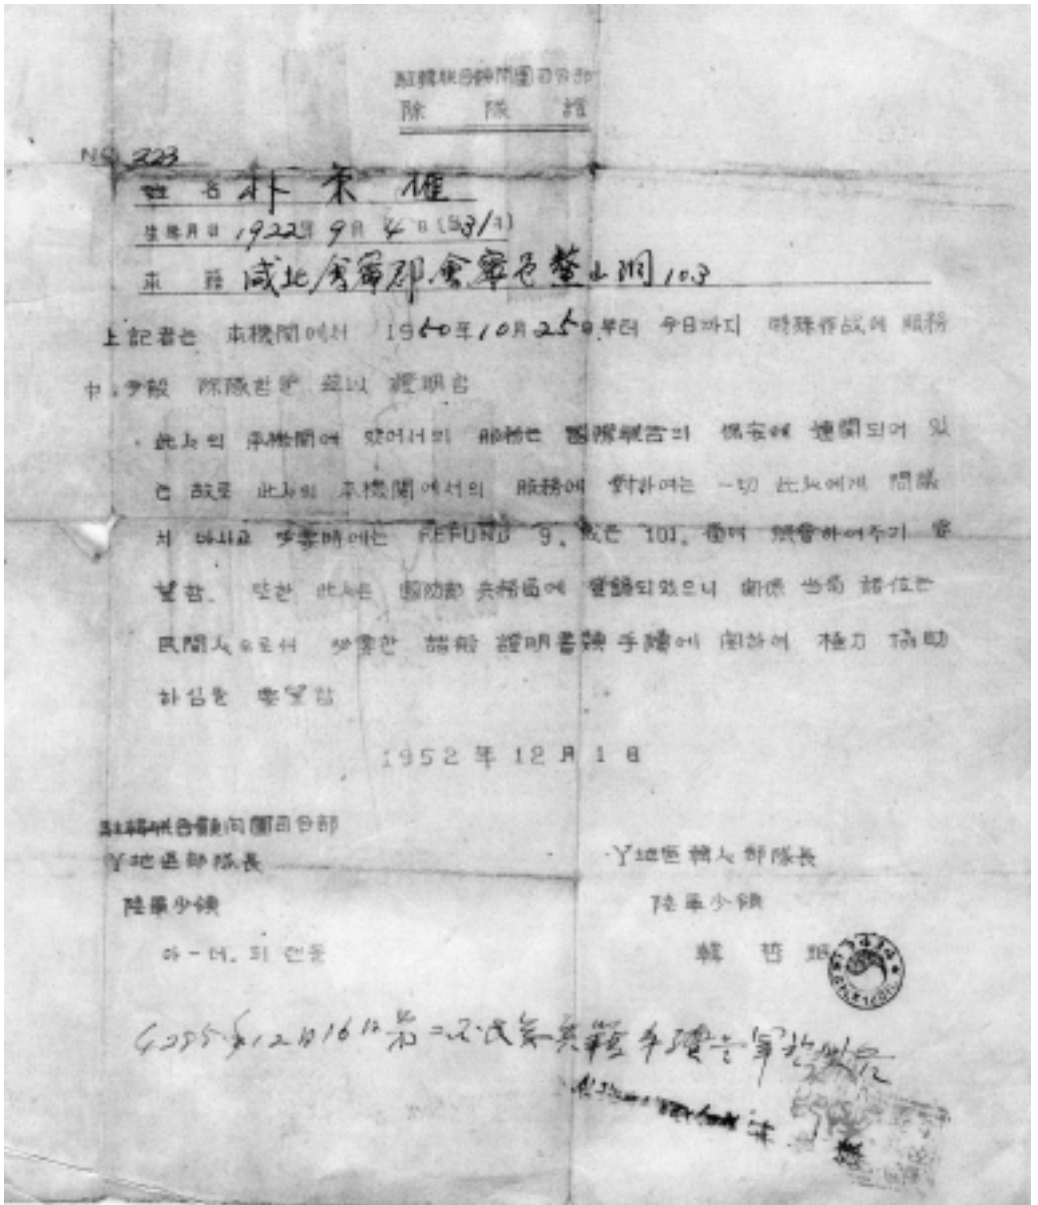 駐韓聯合顧問團司令部
除 隊 證
NO 323
姓 名 朴 雄
生年月日 1922年 9月 4日 (当31才)
本 籍 咸北 會寧郡 會寧邑 鰲山洞 103
上記者는 本機關에서 1950年10月25日부터 今日까지 特殊作战에 服務
中 今般 除隊함을 玆以 證明함
此人의 本機關에 있어서의 服務는 國際聯合의 保安에 連関되어 있
는 故로 此人의 本機關에서의 服務에 對하여는 一切 此人에게 問議
치 마시고 必要時에는 REFUND 9. 或은 101. 로 照會하여주기 要
望함. 또한 此人은 國防部 兵務局에 登錄되였으니 関係 当局 諸位는
民間人으로서 必要한 諸般 證明書類 手續에 関하여 極力 協助
하심을 要望함
1952年 12月 1日
駐韓聯合顧问團司令部
Y地區部隊長
Y地區韓人部隊長
陸軍少領
陸軍少領
아-더.
韓 哲
4285年12月16日 第二国民 兵籍 手續